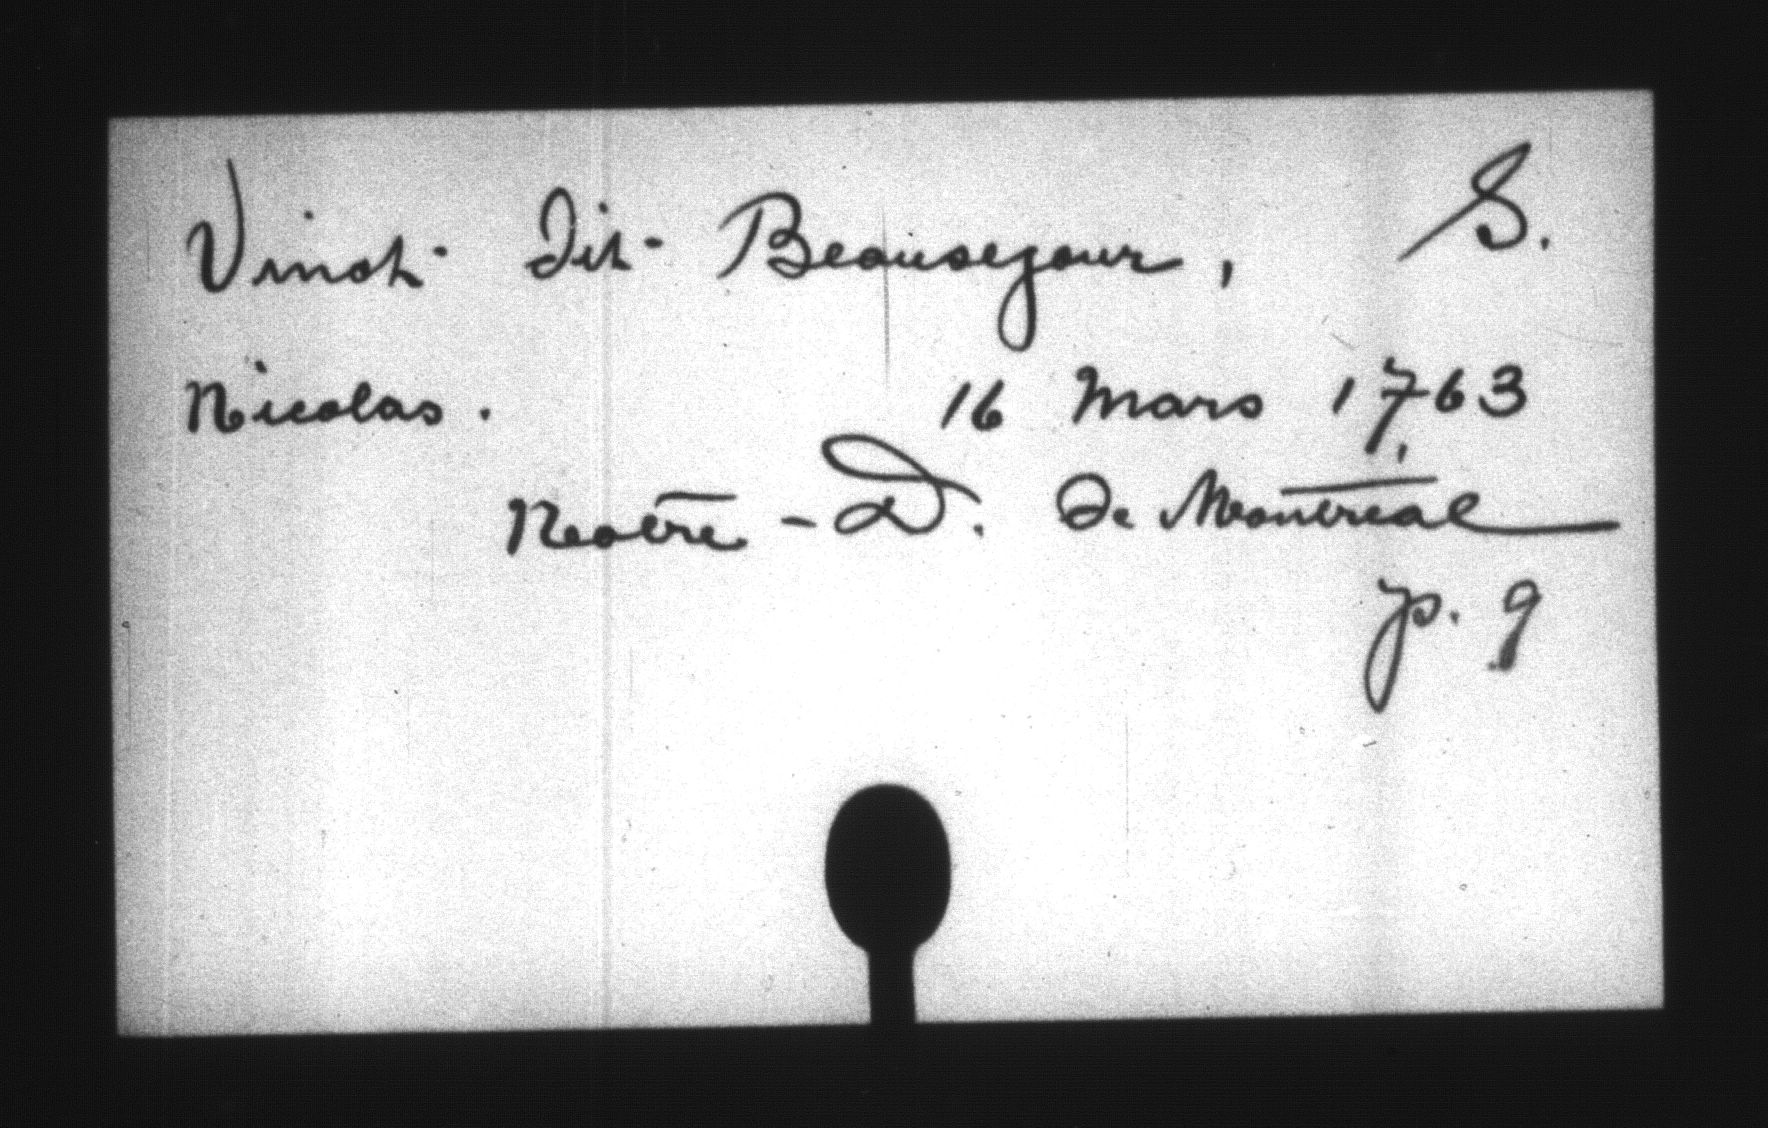 Vinct- dit- Beausejour, S.
Nicolas. 16 Mars 1763
Neotre-D. de Montréal
p. 9